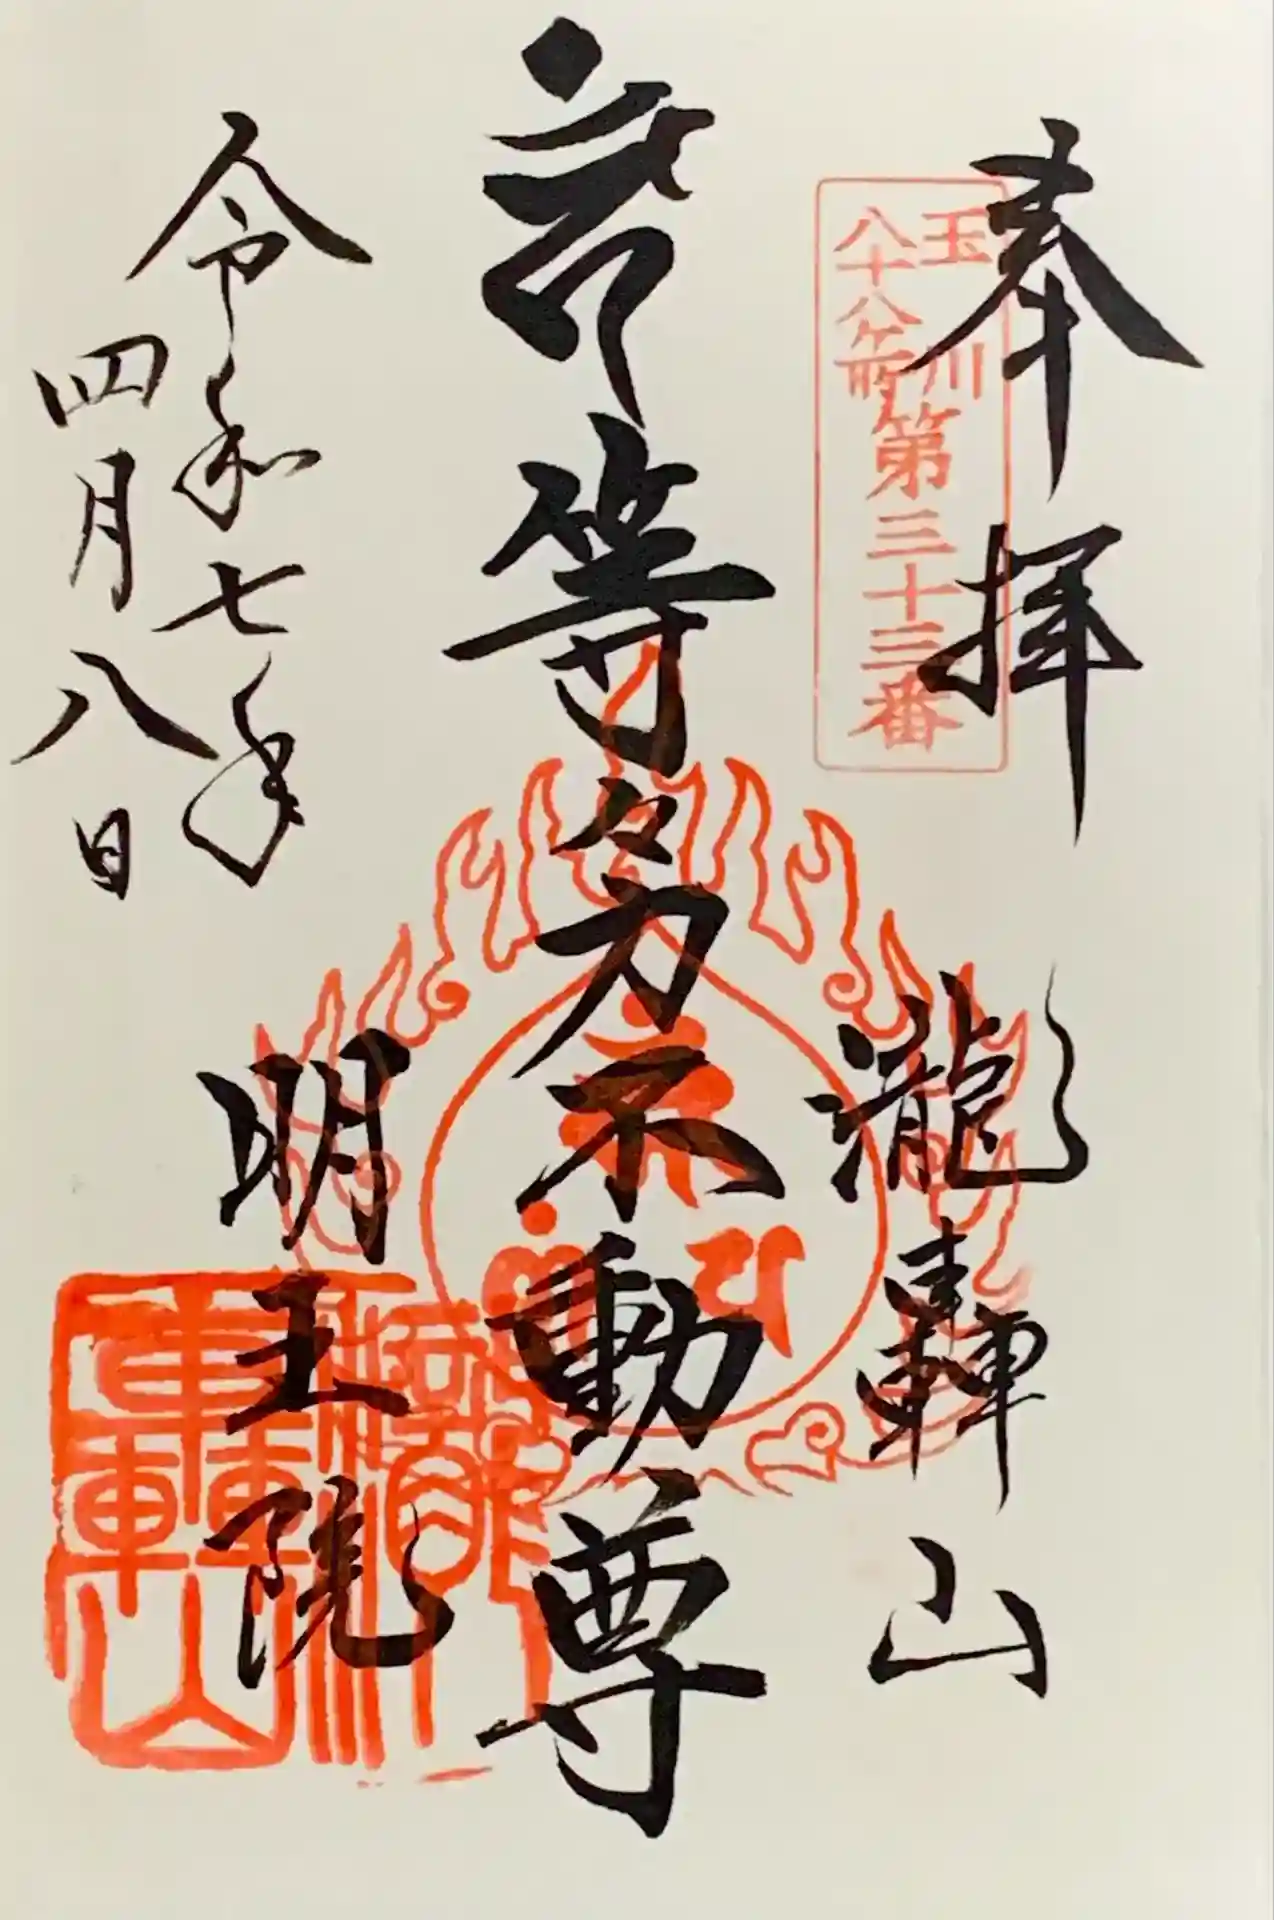 奉拝
玉川
八十八ヶ所
第三十三番
瀧轟山
等々力不動尊
明王院
令和七年
四月八日
瀧轟山